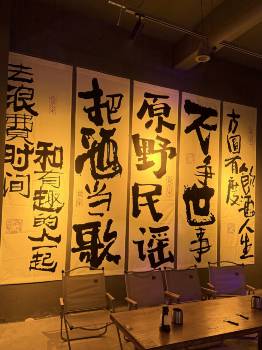 飲酒人生
方圆有度
不争世事
原野民谣
把酒当歌
和有趣的人一起
去浪費时间